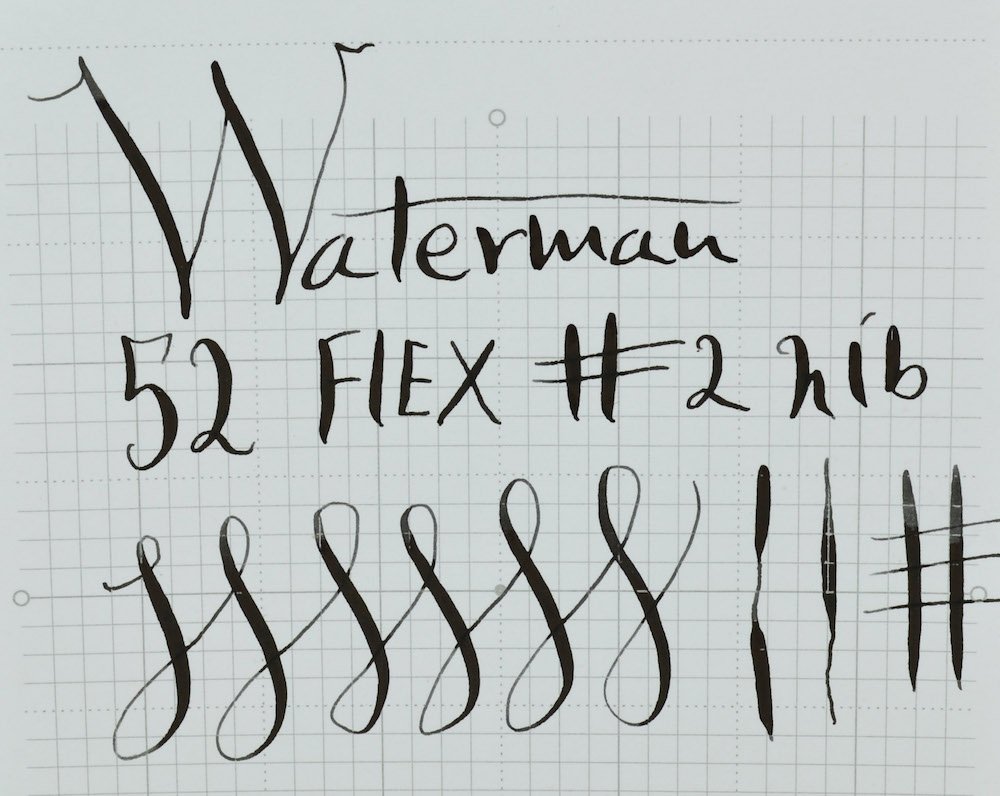 Waterman
52 FLEX #2 nib